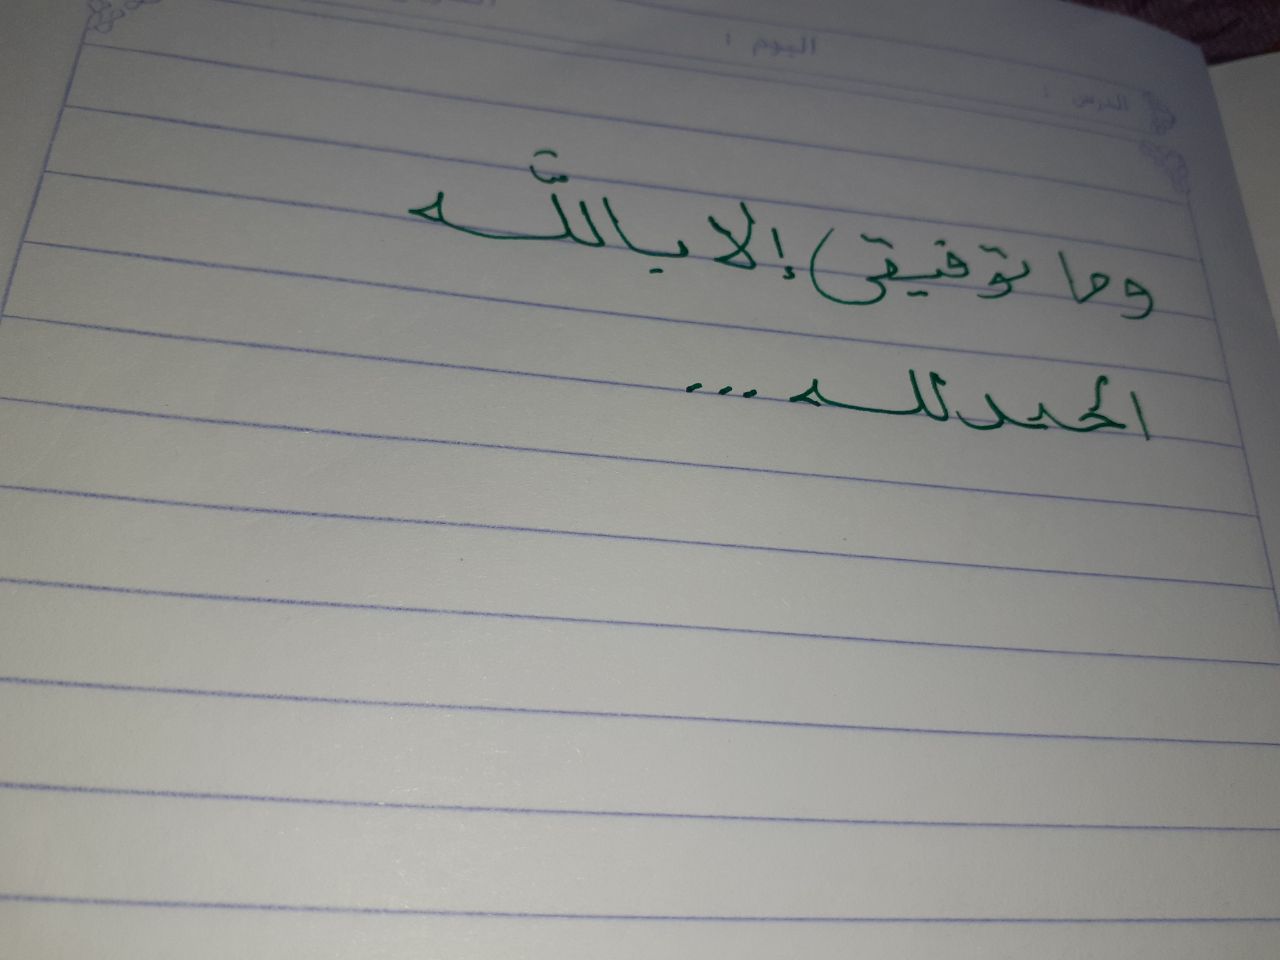 اليوم :
الدرس :
وما توفيقى إلا بالله
الحمد لله ...